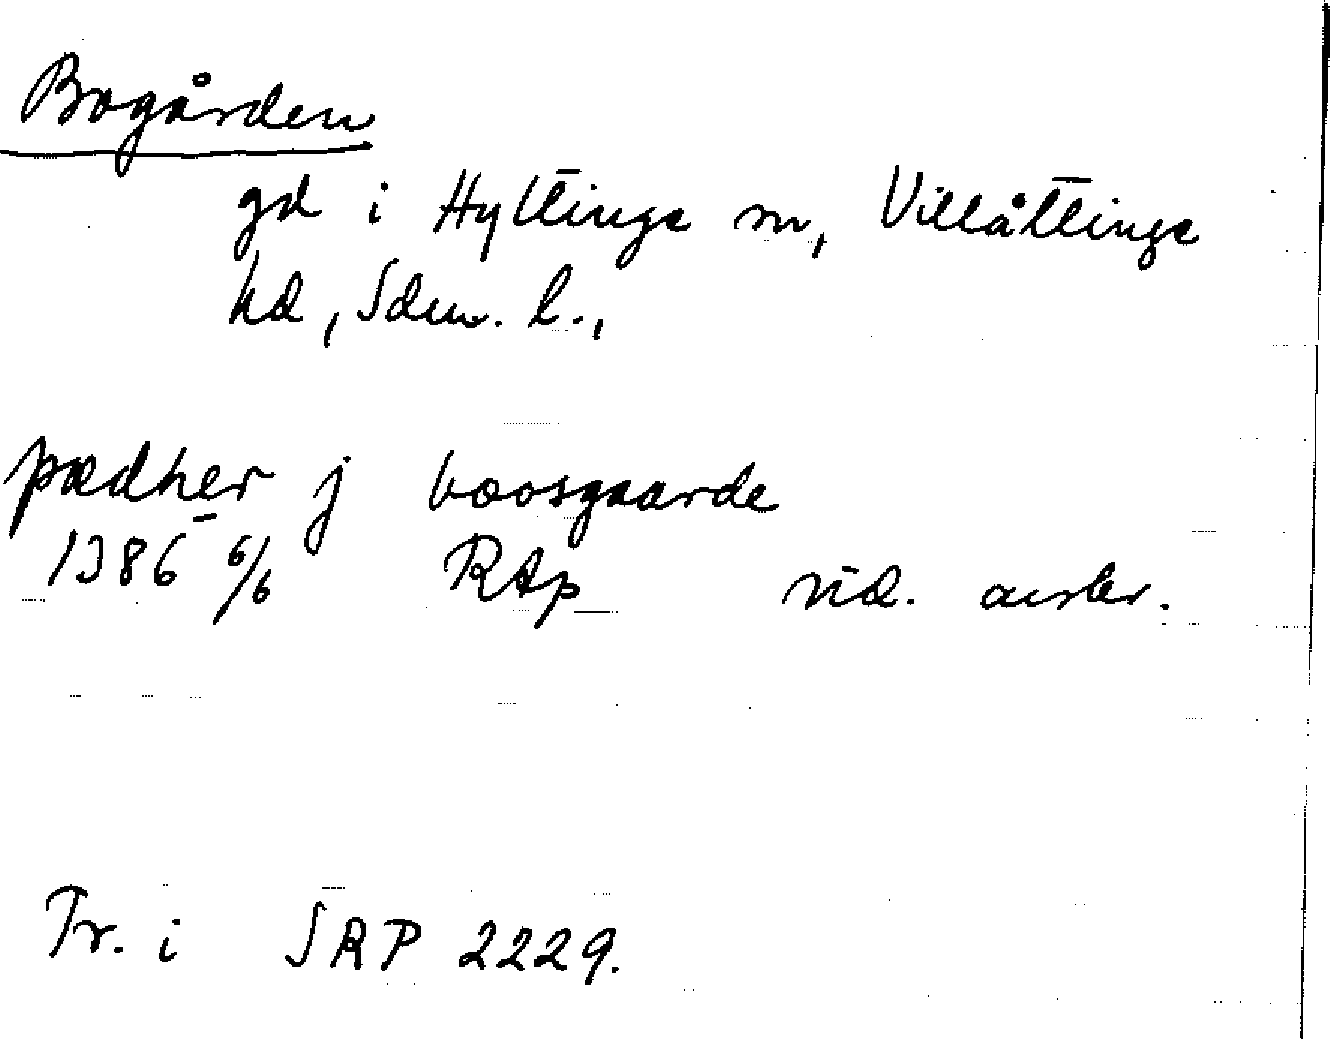 Bogården
gd i Hyltinge sn, Villåttinge
hd, Sdm. l.,
pædher j boosgaarde
1386 6/6 RAp vid. avskr.
Tr. i SRP 2229.